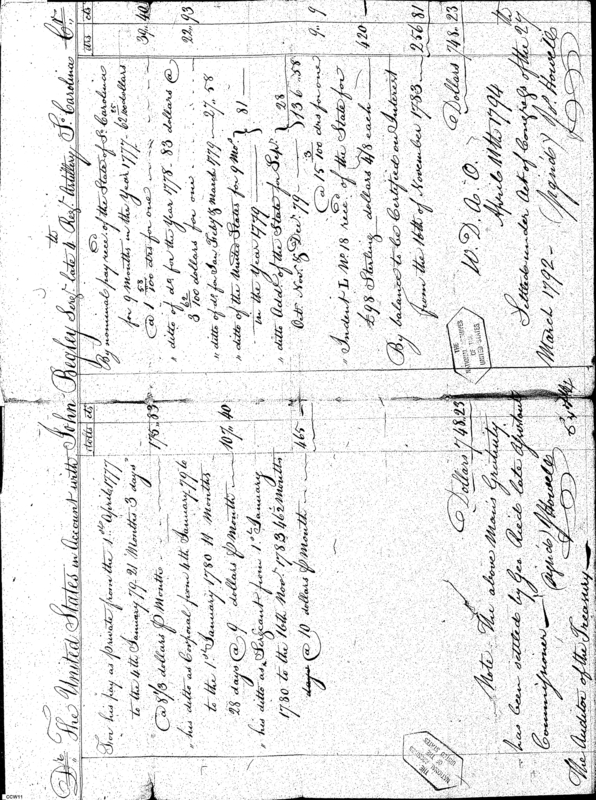 Dr. The United States in Account with John Begley Serjt late 4 Regt Artillery So. Carolina Cr.
dolls cts
For his pay as Private from the 1st April 1777
to the 4th January 79. 21 Months 3 days
@ 8 1/3 dollars P Month 175.83
" his ditto as Corporal from 4th January 79 to
to the 1st January 1780 11 Months
28 days @ 9 dollars P Month 107.40
" his ditto as Sergeant from 1st January
1780 to the 16th Novr. 1783 46 1/2 Months
days @ 10 dollars P Month 465
Dollars 748.23
Note The above Mans Gratuity
has been settled by Geo Reed late Assistant
Commissioner
Signed J Howell
The Auditor of the Treasury
drs cts
By nominal pay recd. of the State of So. Carolina
for 9 Months in the Year 1777. 62 dollars
@ 1 58/100 drs for one 39.40
" ditto of do. for the Year 1778. 83 dollars @
3 62/100 dollars for one 22.93
" ditto of do. for Jan. Feby & March 1779 27.58
" ditto of the United States for 9 Mos.
in the Year 1779 81
" ditto Addl. of the State for Sepr.
Octr Novr & Decr. 79 28
136.58
@ 15 100 drs for one 9.9
" Indent L No. 18 recd. of the State for
£98 Sterling dollars 4/8 each 420
By balance to be Certified on Interest
from the 16th of November 1783 256.81
Dollars 748.23
W. D. A. O.
April 11th 1794
Settled under Act of Congress of the 27th
March 1792
Signed Js. Howell
THE
NATIONAL ARCHIVES
OF THE
UNITED STATES
THE
NATIONAL ARCHIVES
OF THE
UNITED STATES
CCW11